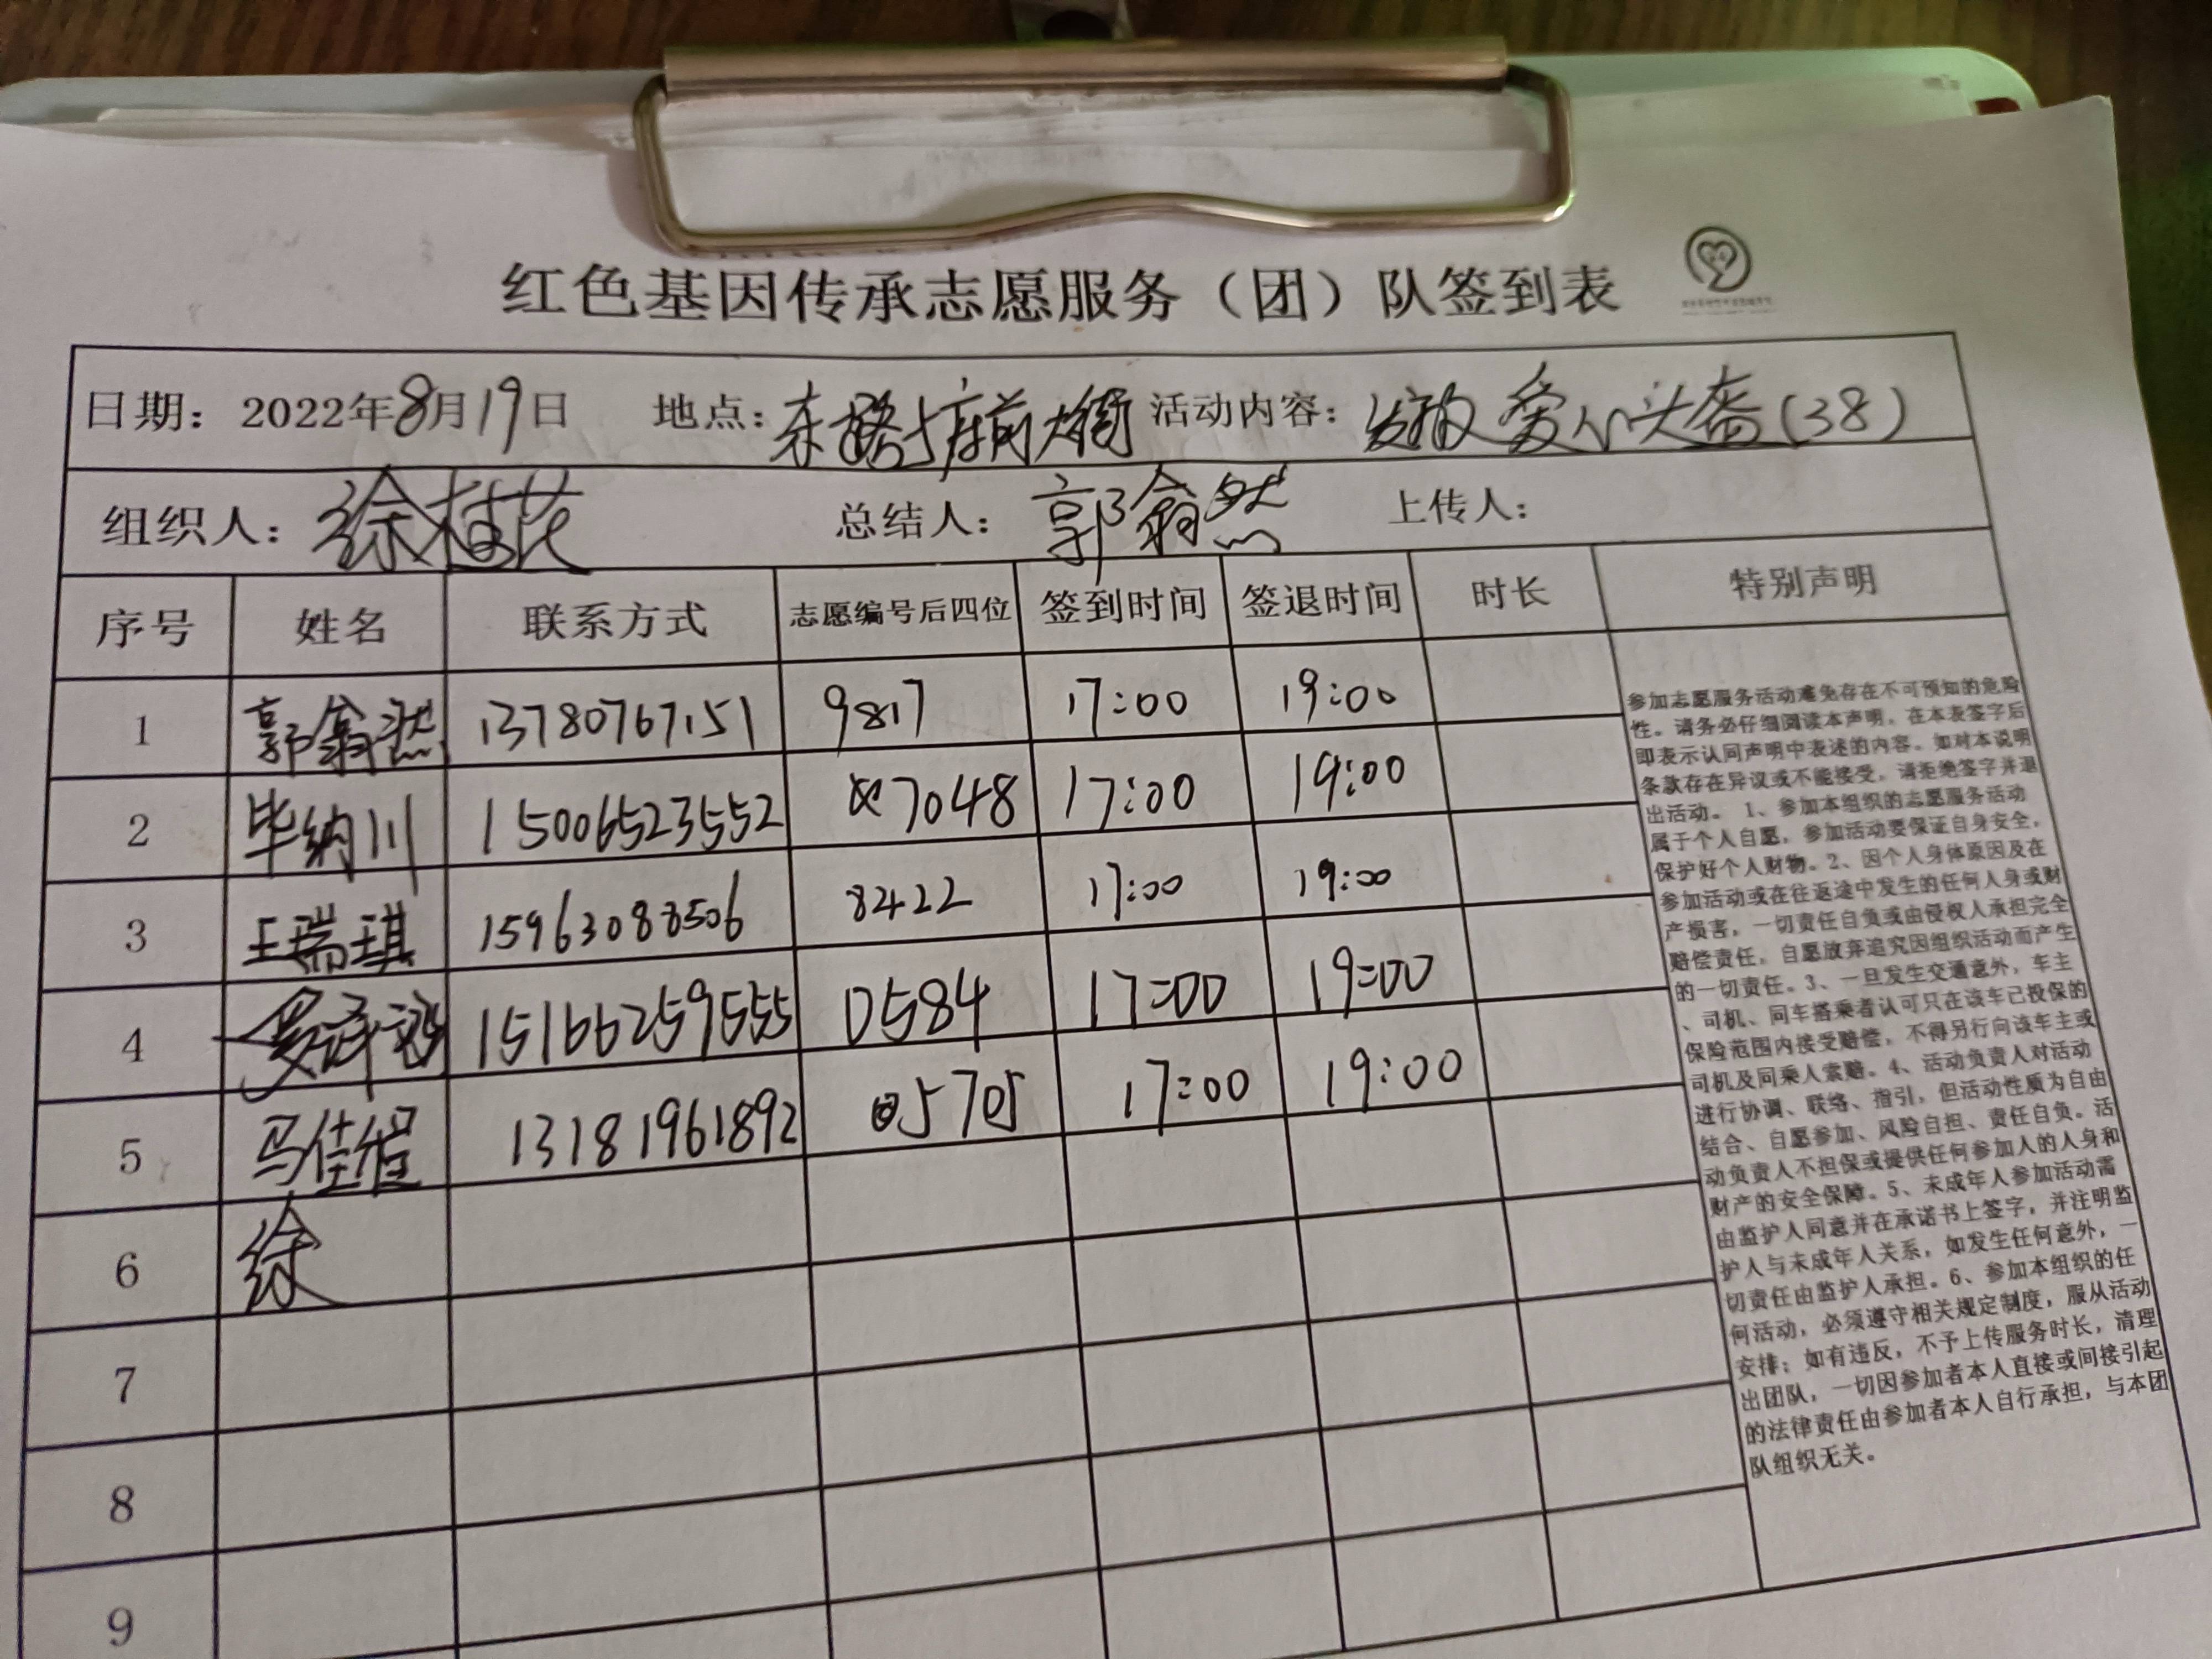 红色基因传承志愿服务（团）队签到表
日期：2022年8月19日 地点：东路 府前大街 活动内容：发放爱心头盔(38)
组织人：徐桂花 总结人：郭翕然 上传人：
序号 姓名 联系方式 志愿编号后四位 签到时间 签退时间 时长 特别声明
1 郭翕然 13780767151 9817 17:00 19:00
2 毕纳川 15006523552 7048 17:00 19:00
3 王瑞琪 15963088506 8422 17:00 19:00
4 15166259555 0584 17:00 19:00
5 马佳程 13181961892 0570 17:00 19:00
6 徐
7
8
9
参加志愿服务活动难免存在不可预知的危险
性。请务必仔细阅读本声明，在本表签字后
即表示认同声明中表述的内容。如对本说明
条款存在异议或不能接受，请拒绝签字并退
出活动。 1、参加本组织的志愿服务活动
属于个人自愿，参加活动要保证自身安全，
保护好个人财物。2、因个人身体原因及在
参加活动或在往返途中发生的任何人身或财
产损害，一切责任自负或由侵权人承担完全
赔偿责任，自愿放弃追究因组织活动而产生
的一切责任。3、一旦发生交通意外，车主
、司机、同车搭乘者认可只在该车已投保的
保险范围内接受赔偿，不得另行向该车主或
司机及同乘人索赔。4、活动负责人对活动
进行协调、联络、指引，但活动性质为自由
结合、自愿参加、风险自担、责任自负。活
动负责人不担保或提供任何参加人的人身和
财产的安全保障。5、未成年人参加活动需
由监护人同意并在承诺书上签字，并注明监
护人与未成年人关系，如发生任何意外，一
切责任由监护人承担。6、参加本组织的任
何活动，必须遵守相关规定制度，服从活动
安排；如有违反，不予上传服务时长，清理
出团队，一切因参加者本人直接或间接引起
的法律责任由参加者本人自行承担，与本团
队组织无关。